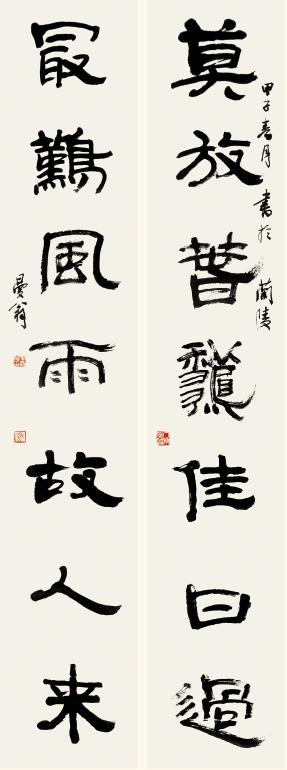 莫放萅龝佳日過
甲子春月書於蘭陵
冣難風雨故人来
曼翁